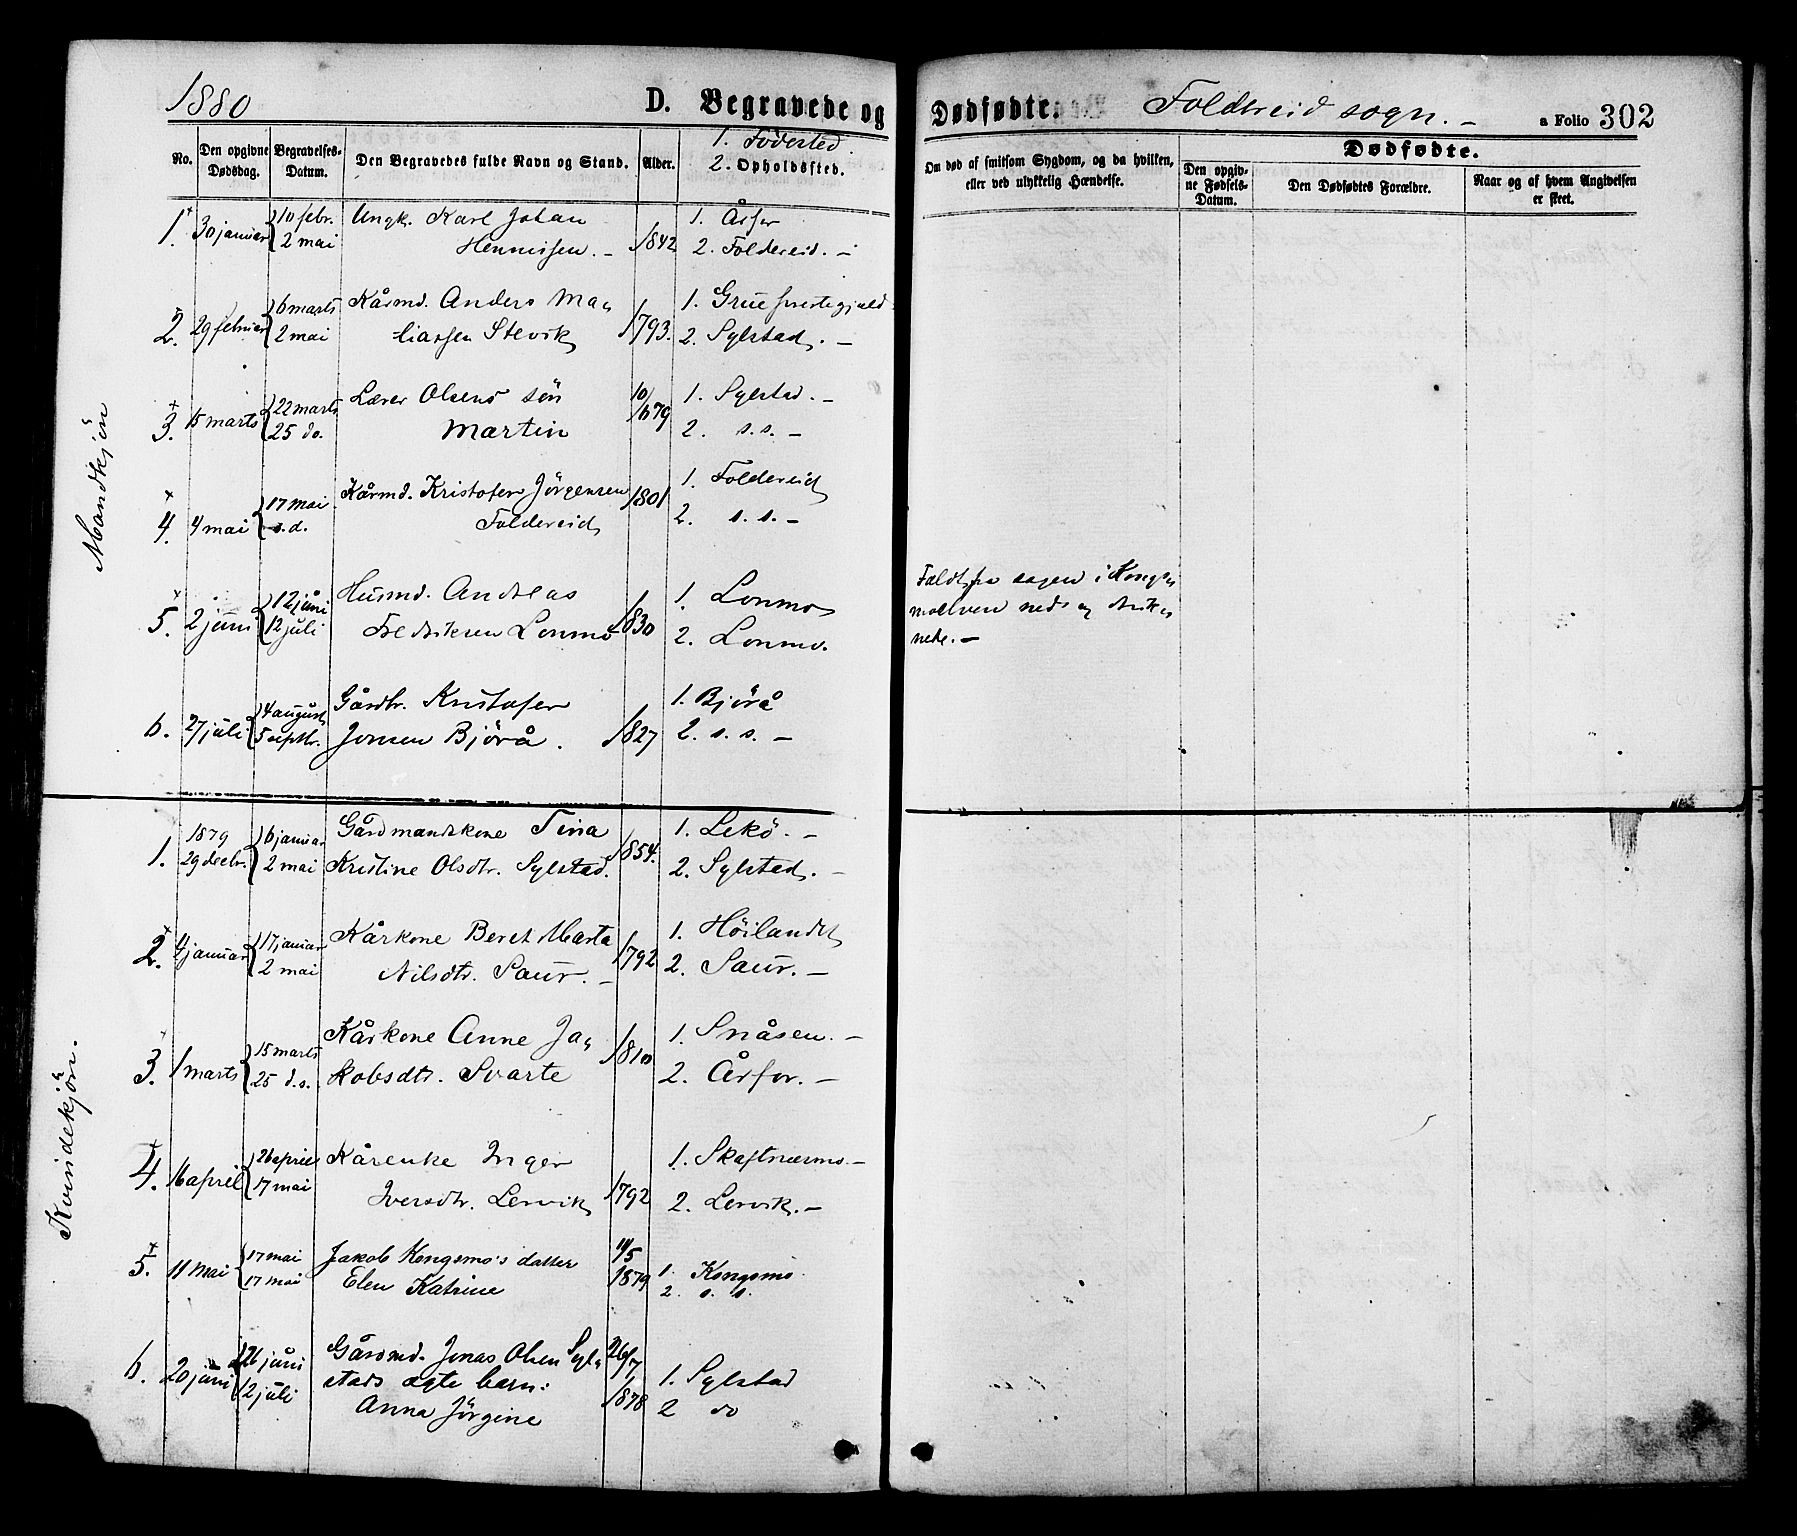 1880 D. Begravede og
No. Den opgivne Dødsdag. Begravelses-Datum. Den Begravedes fulde Navn og Stand. Alder. 1. Födested. 2. Opholdssted.
Mandkjön
1. 30 januar 10 febr. Ungk. Karl Johan 1842 1. Årfor
2 mai Hennissen. – 2. Foldereid. –
2. 29 februar 6 marts Kårmd. Anders Ma- 1793. 1. Grue prestegjeld
2 mai tiassen Stevik 2. Sylstad. –
3. 15 marts 22 marts Lærer Olsens sön 10/6 79 1. Sylstad. –
25 do. Martin 2. s.s. –
4. 4 mai 17 mai Kårmd. Kristofer Jörgensen 1801 1. Foldereid
s.d. Foldereid 2. s.s. –
5. 2 juni 12 juni Husmd. Andreas 1830 1. Lonmo
12 juli Fredriksen Lonmo 2. Lonmo.
6. 27 juli 4 august Gårdbr. Kristofer 1827 1. Bjørå
5 septbr. Jonsen Bjørå. 2. s.s. –
Kvindekjön.
1. 1879 29 decbr. 6 januar Gårdmandskone Tina 1854. 1. Lekö. –
2 mai Kristine Olsdtr. Sylstad. 2. Sylstad. –
2. 4 januar 17 januar Kårkone Beret Marta 1792 1. Höilandet
2 mai Nilsdtr. Saur. – 2. Saur. –
3. 1 marts 15 marts Kårkone Anne Ja- 1810 1. Snåsen. –
25 d.s. kobsdtr. Svarte 2. Årfor. –
4. 16 april 26 april Kårenke Inger 1792 1. Skaftnærmo. –
17 mai Iversdtr. Lervik 2. Lervik. –
5. 11 mai 17 mai Jakob Kongsmo's datter 11/5 1879 1. Kongsmo
17 mai Elen Katrine 2. s. s.
6. 20 juni 26 juni Gårdmd. Jonas Olsen Syl- 26/7 1878 1. Sylstad
12 juli stads ægte barn: 2 do
Anna Jörgine
Dødfødte. Foldereid sogn. – a Folio 302
Om død af smitsom Sygdom, og da hvilken, eller ved ulykkelig Hændelse. Dødfødte.
Den opgivne Fødsels-Datum. Den Dødfødtes Forældre. Naar og af hvem Angivelsen er skeet.
Faldt fra sagen i Kongs-
moelven neds og druk-
nede. –